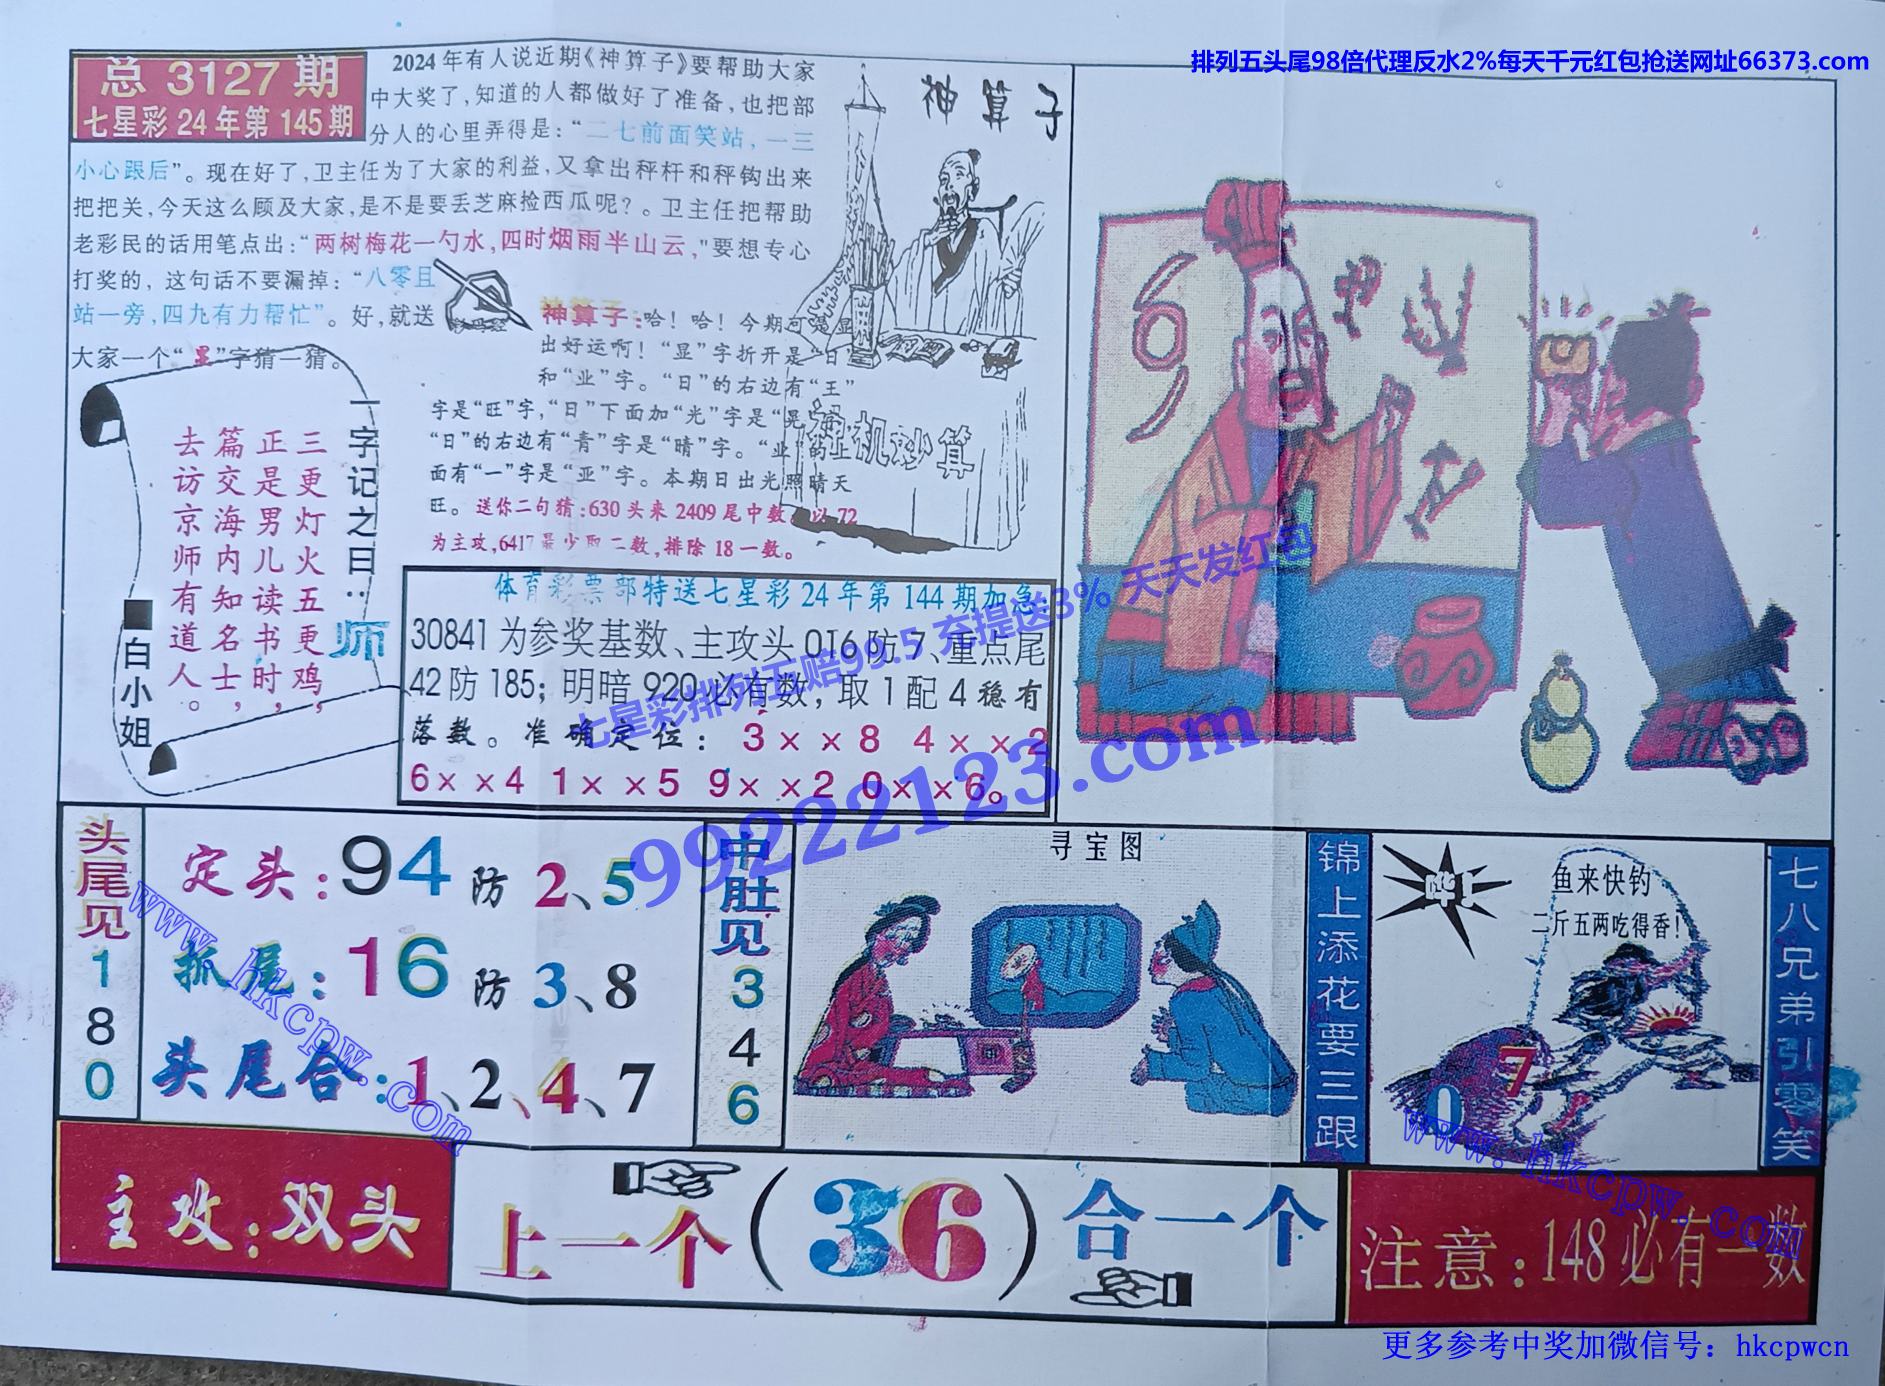 排列五头尾98倍代理反水2%每天千元红包抢送网址66373.com
总 3127 期
七星彩24年第145期
2024年有人说近期《神算子》要帮助大家
中大奖了,知道的人都做好了准备,也把部
分人的心里弄得是:“二七前面笑站,一三
小心跟后”。现在好了,卫主任为了大家的利益,又拿出秤杆和秤钩出来
把把关,今天这么顾及大家,是不是要丢芝麻捡西瓜呢?。卫主任把帮助
老彩民的话用笔点出:“两树梅花一勺水,四时烟雨半山云,”要想专心
打奖的,这句话不要漏掉:“八零且
站一旁,四九有力帮忙”。好,就送
大家一个“显”字猜一猜。
神算子
神算子:哈!哈!今期可是显
出好运啊!“显”字折开是“日”
和“业”字。“日”的右边有“王”
字是“旺”字,“日”下面加“光”字是“晃
“日”的右边有“青”字是“晴”字。“业”的上
面有“一”字是“亚”字。本期日出光照晴天
旺。送你二句猜:630头来2409尾中数。以72
为主攻,6417最少取二数,排除18一数。
神机妙算
一字记之曰:师
三更灯火五更鸡,
正是男儿读书时,
篇交海内知名士,
去访京师有道人。
■白小姐
体育彩票部特送七星彩24年第144期加急:
30841为参奖基数、主攻头016防7、重点尾
42防185;明暗920必有数,取1配4稳有
落数。准确定位:3××8 4××2
6××4 1××5 9××2 0××6。
七星彩排列五赔99.5 充提送3% 天天发红包
99222123.com
9
头尾见180
定头:94防2、5
抓尾:16防3、8
头尾合:1、2、4、7
www.hkcpw.com
中肚见346
寻宝图
锦上添花要三跟
鱼来快钓
二斤五两吃得香!
0 7
www.hkcpw.com
七八兄弟引零笑
主攻:双头
上一个(36)合一个
注意:148必有一数
更多参考中奖加微信号:hkcpwcn